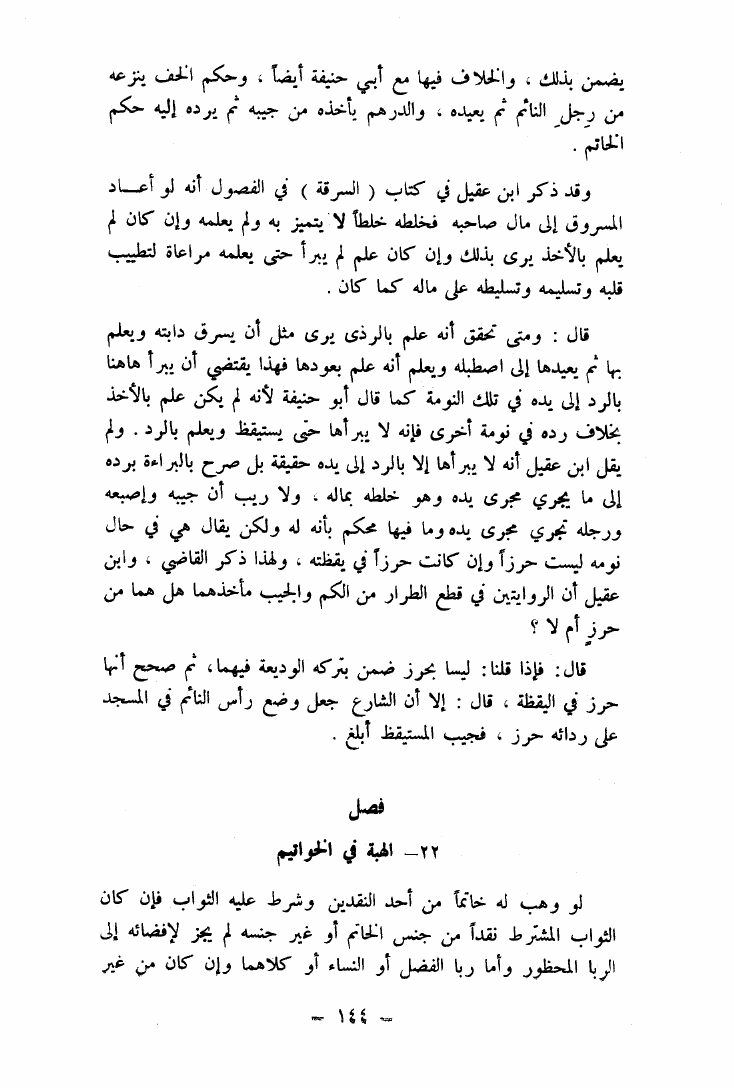 يضمن بذلك ، والخلاف فيها مع أبي حنيفة أيضاً ، وحكم الخف ينزعه
من رِجلِ النائم ثم يعيده ، والدرهم يأخذه من جيبه ثم يرده إليه حكم
الخاتم .
وقد ذكر ابن عقيل في كتاب ( السرقة ) في الفصول أنه لو أعـــاد
المسروق إلى مال صاحبه فخلطه خلطاً لا يتميز به ولم يعلمه وإن كان لم
يعلم بالأخذ يرى بذلك وإن كان علم لم يبرأ حتى يعلمه مراعاة لتطييب
قلبه وتسليمه وتسليطه على ماله كما كان .
قال : ومتى تحقق أنه علم بالرذى يرى مثل أن يسرق دابته ويعلم
بها ثم يعيدها إلى اصطبله ويعلم أنه علم بعودها فهذا يقتضي أن يبرأ هاهنا
بالرد إلى يده في تلك النومة كما قال أبو حنيفة لأنه لم يكن علم بالأخذ
بخلاف رده في نومة أخرى فإنه لا يبرأها حتى يستيقظ ويعلم بالرد . ولم
يقل ابن عقيل أنه لا يبرأها إلا بالرد إلى يده حقيقة بل صرح بالبراءة برده
إلى ما يجري مجرى يده وهو خلطه بماله ، ولا ريب أن جيبه وإصبعه
ورجله تجري مجرى يده وما فيها محكم بأنه له ولكن يقال هي في حال
نومه ليست حرزاً وإن كانت حرزاً في يقظته ، ولهذا ذكر القاضي ، وابن
عقيل أن الروايتين في قطع الطرار من الكم والجيب مأخذهما هل هما من
حرزٍ أم لا ؟
قال: فإذا قلنا: ليسا بحرز ضمن بتركه الوديعة فيهما، ثم صحح أنها
حرز في اليقظة ، قال : إلا أن الشارع جعل وضع رأس النائم في المسجد
على ردائه حرز ، فجيب المستيقظ أبلغ .
فصل
٢٢– الهبة في الخواتيم
لو وهب له خاتماً من أحد النقدين وشرط عليه الثواب فإن كان
الثواب المشترط نقداً من جنس الخاتم أو غير جنسه لم يجز لإفضائه إلى
الربا المحظور وأما ربا الفضل أو النساء أو كلاهما وإن كان من غير
– ١٤٤ –